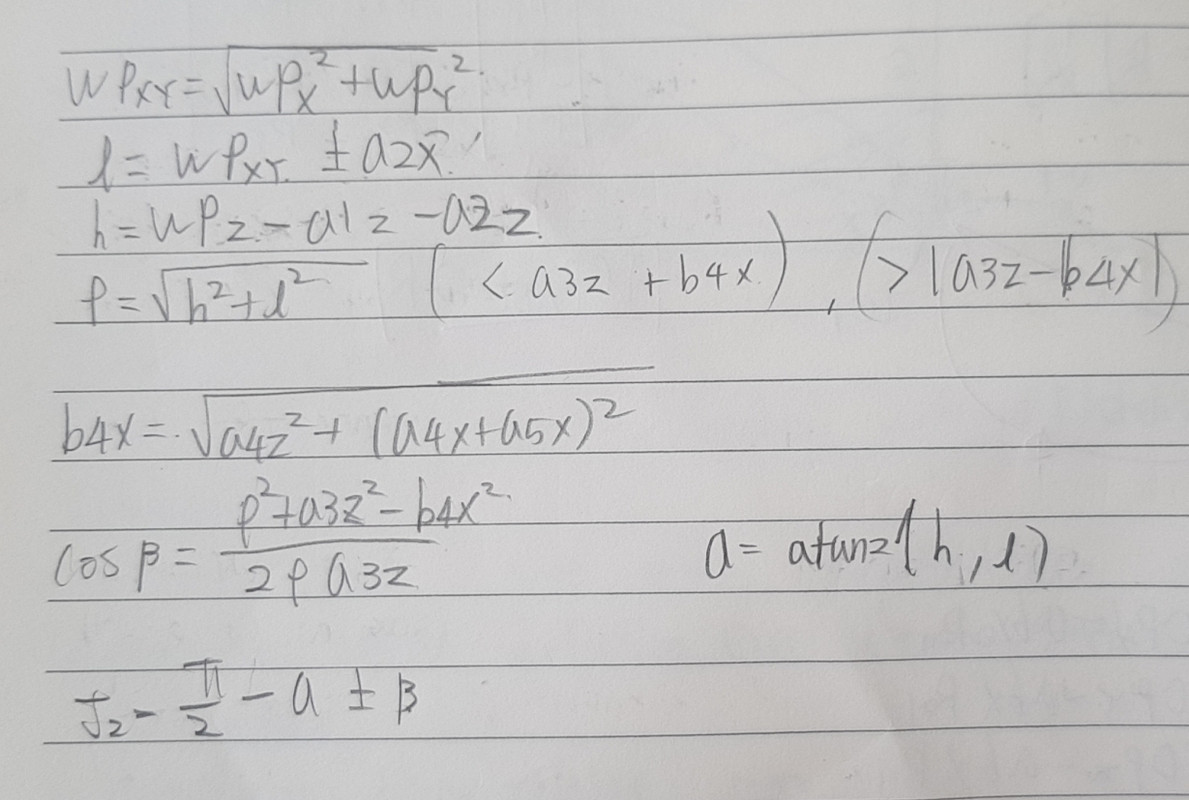 WP_XY = √(WP_X² + WP_Y²)
l = WP_XY ± a2x
h = WP_z - a1z - a2z
ρ = √(h² + l²) (< a3z + b4x), (> |a3z - b4x|)
b4x = √(a4z² + (a4x + a5x)²)
cos β = (ρ² + a3z² - b4x²) / (2ρ a3z) a = atan2(h, l)
J₂ = π/2 - a ± β